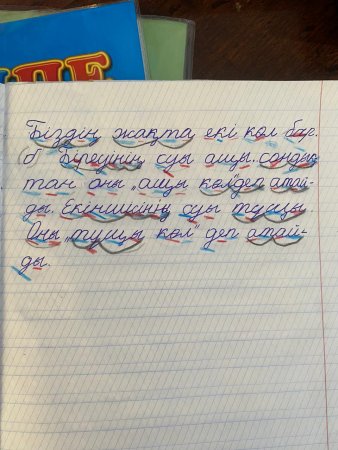 Біздің жақта екі көл бар.
Біреуінің суы ащы, сондық
тан оны „ащы көл" деп атай-
ды. Екіншісінің суы тұщы.
Оны „тұщы көл" деп атай-
ды.